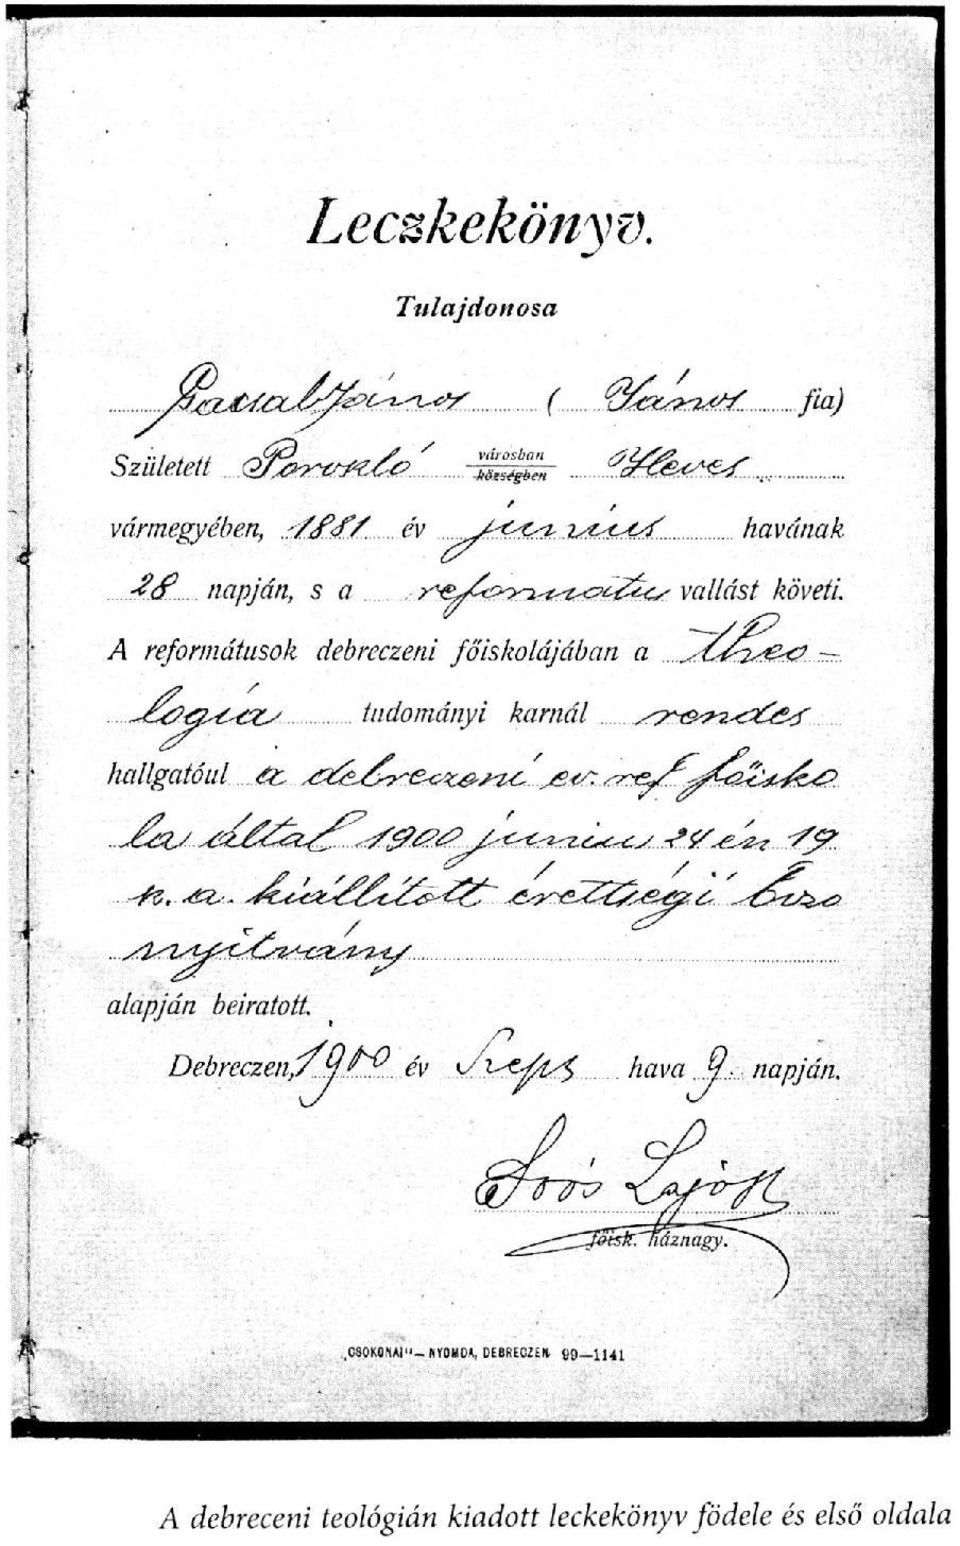 Leczkekönyv.
Tulajdonosa
János ( János fia)
Született Poroszló városban Heves
községben
vármegyében, 1881 év június havának
28 napján, s a református vallást követi.
A reformátusok debreczeni főiskolájában a theo-
logia tudományi karnál rendes
hallgatóul a debreczeni ev. ref főisko
la által 1900 junius 24 én 19
n. a. kiállított érettségi bizo
nyitvány
alapján beiratott.
Debreczen, 1900 év Szept hava 9. napján.
Soós Lajos
főisk. háznagy.
„CSOKONAI"—NYOMDA, DEBRECZEN 99—1141
A debreceni teológián kiadott leckekönyv födele és első oldala